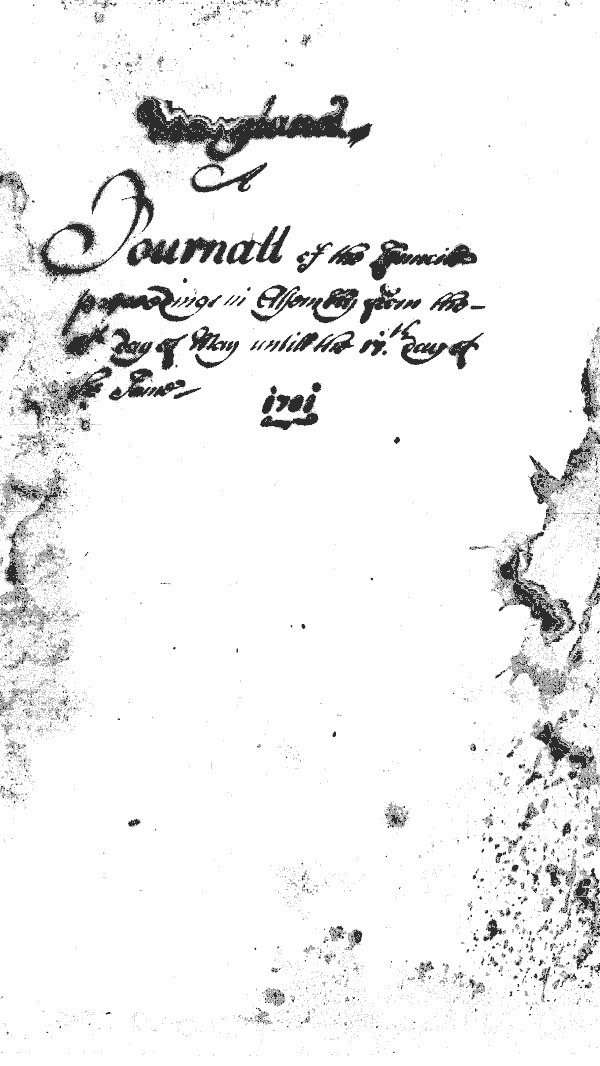 Maryland
A
Journall of the Councills
proceedings in Assembly from the
day of May untill the 17.th day of
the Same
1701